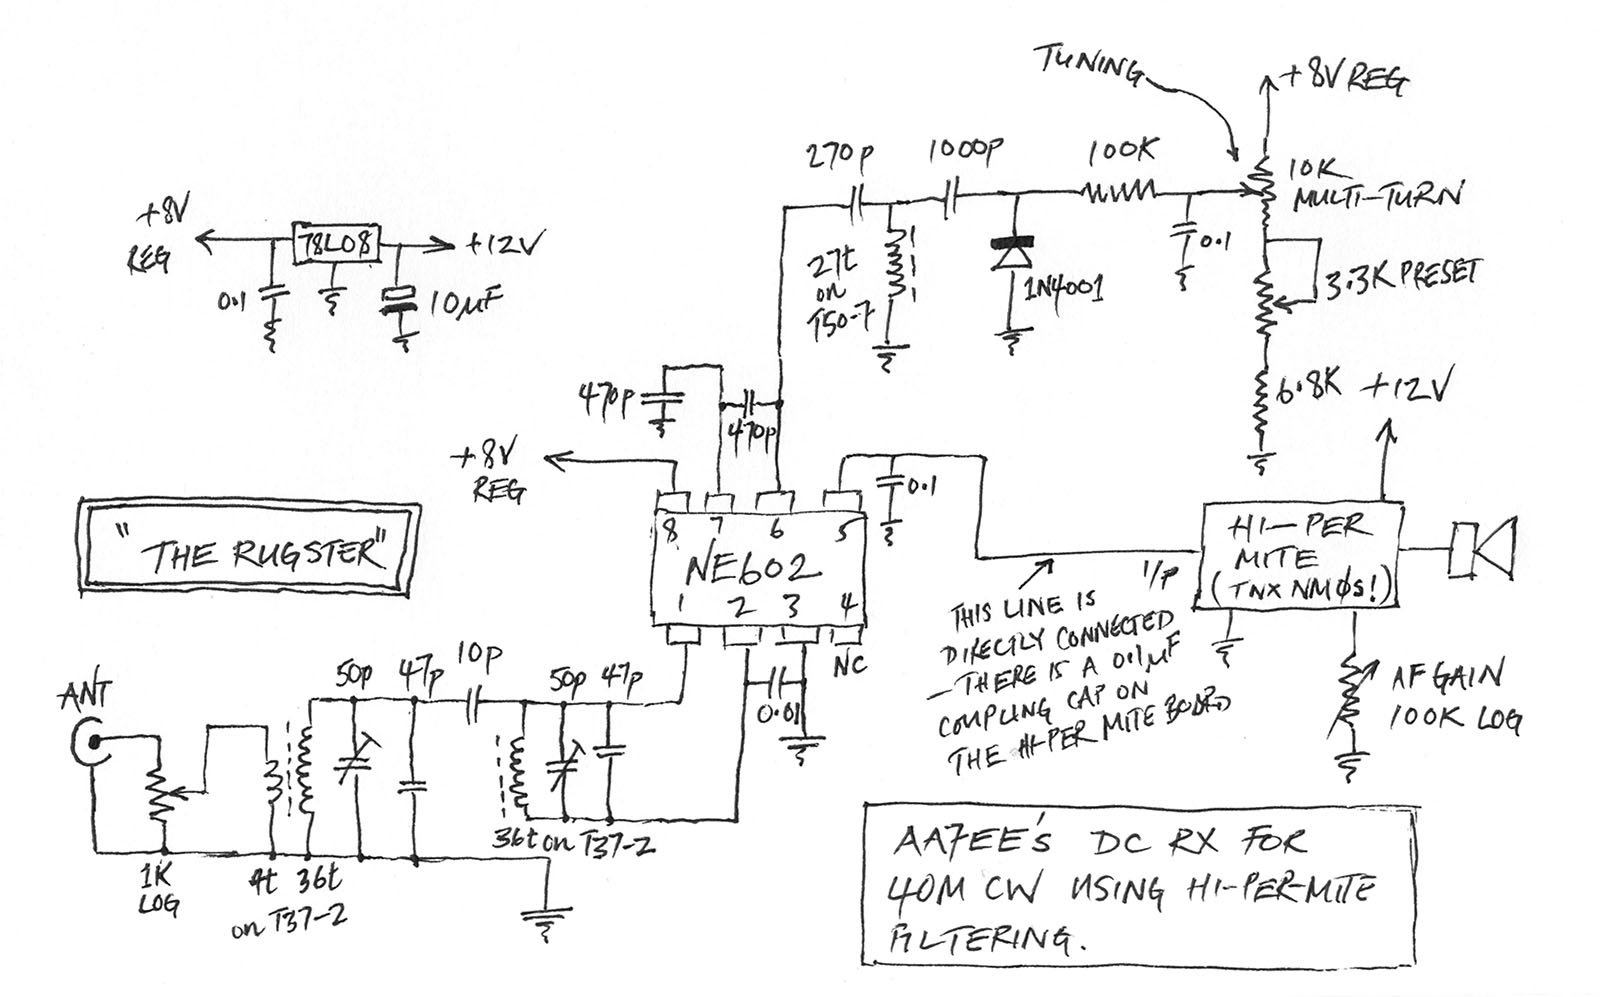 TUNING
+8V REG
270p
1000p
100K
10K
MULTI-TURN
+8V
REG
78L08
+12V
0.1
10µF
27t
on
T50-7
1N4001
0.1
3.3K PRESET
470p
470p
6.8K
+12V
+8V
REG
0.1
"THE RUGSTER"
8 7 6 5
NE602
1 2 3 4
NC
HI-PER
MITE
(TNX NMØS!)
I/P
THIS LINE IS
DIRECTLY CONNECTED
- THERE IS A 0.1µF
COUPLING CAP ON
THE HI-PER MITE BOARD
AF GAIN
100K LOG
ANT
50p
47p
10p
50p
47p
0.01
36t on T37-2
1K
LOG
4t 36t
on T37-2
AA7EE's DC RX FOR
40M CW USING HI-PER-MITE
FILTERING.